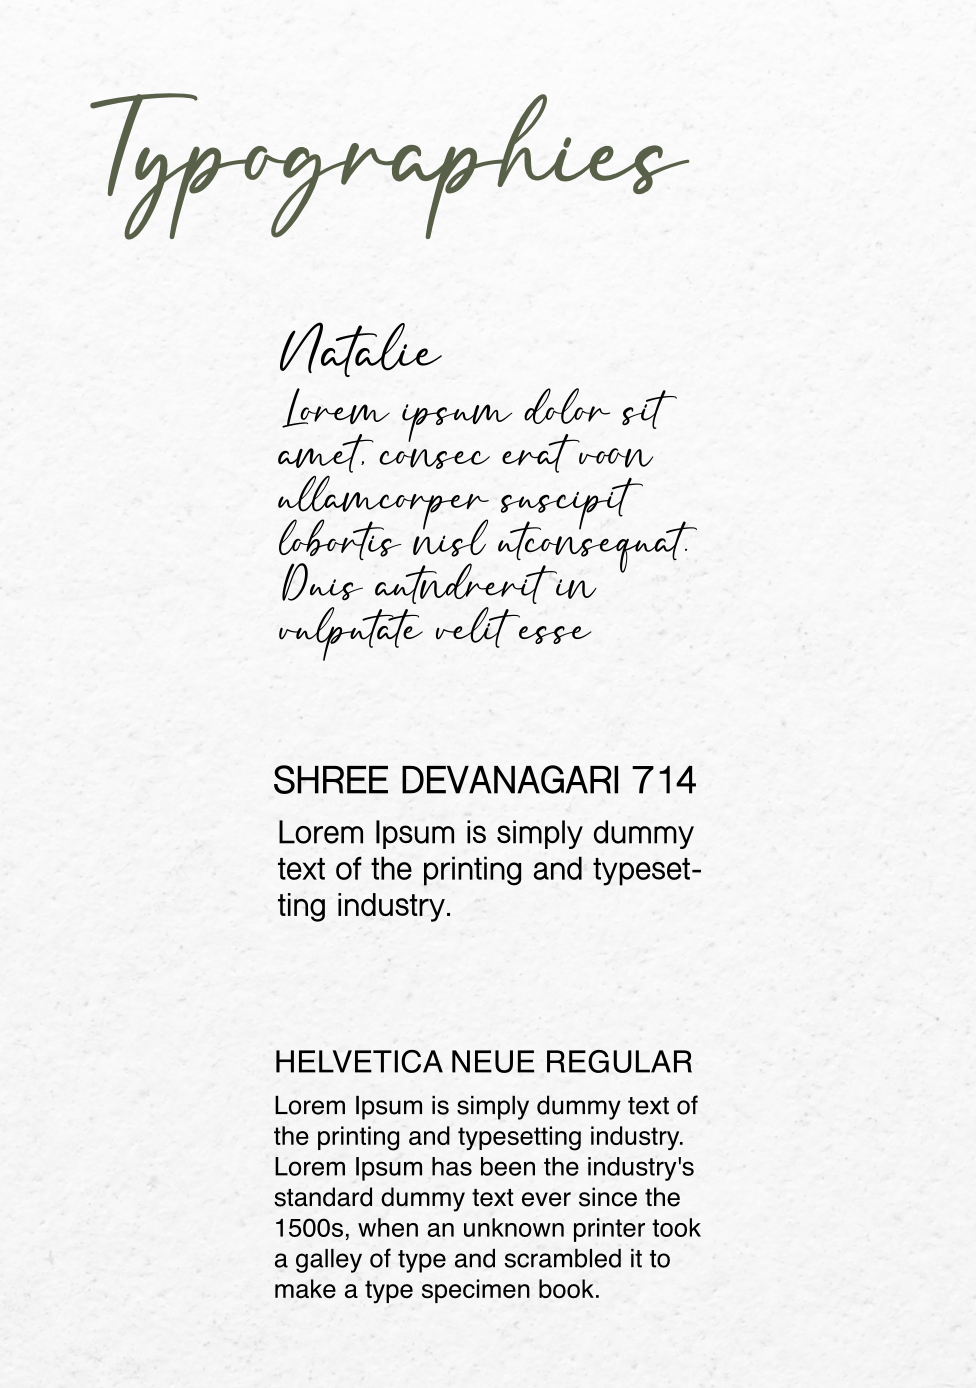 Typographies
Natalie
Lorem ipsum dolor sit
amet, consec erat voon
ullamcorper suscipit
lobortis nisl utconsequat.
Duis autndrerit in
vulputate velit esse
SHREE DEVANAGARI 714
Lorem Ipsum is simply dummy
text of the printing and typeset-
ting industry.
HELVETICA NEUE REGULAR
Lorem Ipsum is simply dummy text of
the printing and typesetting industry.
Lorem Ipsum has been the industry's
standard dummy text ever since the
1500s, when an unknown printer took
a galley of type and scrambled it to
make a type specimen book.